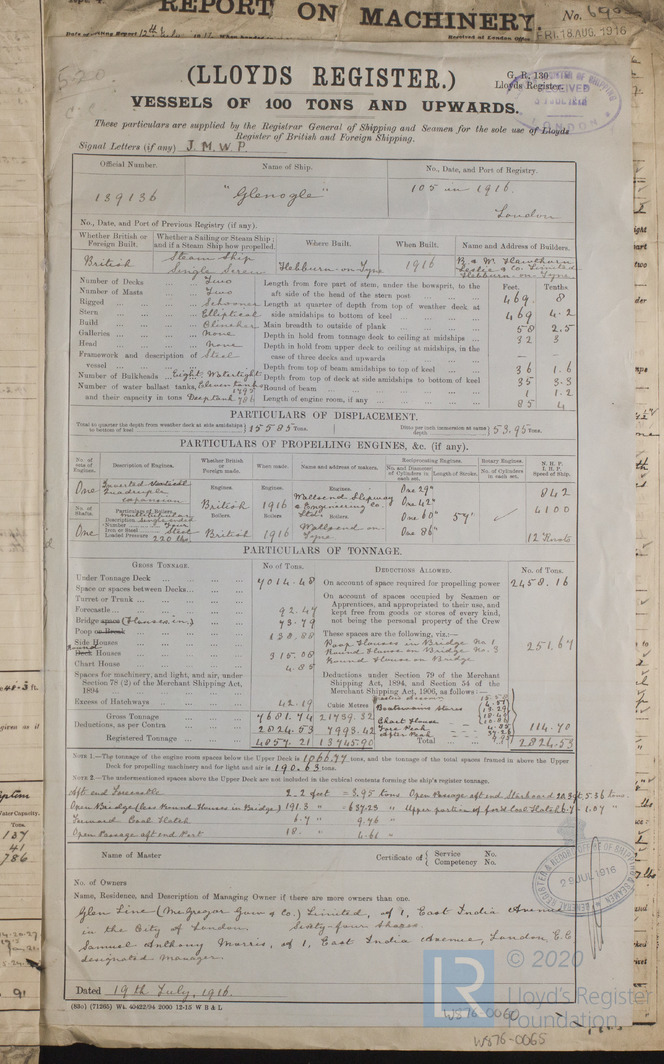 REPORT ON MACHINERY.
No.
FRI. 18 AUG. 1916
Received at London Office
520
(LLOYDS REGISTER.)
G. R. 130.
Lloyds Register.
VESSELS OF 100 TONS AND UPWARDS.
RECEIVED
LONDON
These particulars are supplied by the Registrar General of Shipping and Seamen for the sole use of Lloyds
Register of British and Foreign Shipping.
Signal Letters (if any) J. M. W. P.
Official Number. Name of Ship. No., Date, and Port of Registry.
139136 "Glenogle" 105 in 1916.
London
No., Date, and Port of Previous Registry (if any).
Whether British or Foreign Built. Whether a Sailing or Steam Ship; and if a Steam Ship how propelled. Where Built. When Built. Name and Address of Builders.
British Steam Ship Single Screw Hebburn-on-Tyne 1916 R. & W. Hawthorn Leslie & Co. Limited Hebburn-on-Tyne
Feet. Tenths
Number of Decks Two
Number of Masts Two
Rigged Schooner
Stern Elliptical
Build Clincher
Galleries None
Head None
Framework and description of vessel Steel
Number of Bulkheads Eight Watertight
Number of water ballast tanks, Eleven tanks
and their capacity in tons Deep tank 786
Length from fore part of stem, under the bowsprit, to the
aft side of the head of the stern post 469. 8
Length at quarter of depth from top of weather deck at
side amidships to bottom of keel 469 4.2
Main breadth to outside of plank 58 2.5
Depth in hold from tonnage deck to ceiling at midships 32 3
Depth in hold from upper deck to ceiling at midships, in the
case of three decks and upwards — —
Depth from top of beam amidships to top of keel 36 1.6
Depth from top of deck at side amidships to bottom of keel 35 3.3
Round of beam 1 1.2
Length of engine room, if any 85 4
PARTICULARS OF DISPLACEMENT.
Total to quarter the depth from weather deck at side amidships to bottom of keel 15585 Tons.
Ditto per inch immersion at same depth 53.95 Tons.
PARTICULARS OF PROPELLING ENGINES, &c. (if any).
No. of sets of Engines. Description of Engines. Whether British or Foreign made. When made. Name and address of makers. Reciprocating Engines. No. and Diameter of Cylinders in each set. Length of Stroke. Rotary Engines. No. of Cylinders in each set. N. H. P. I. H. P. Speed of Ship.
One Inverted Vertical Quadruple expansion
Engines. British 1916 Wallsend Slipway & Engineering Co.
One 29"
One 42"
One 60" 54"
One 86"
842
4100
12 Knots
No. of Shafts. Particulars of Boilers.
One
Description Single ended
Number
Iron or Steel Steel
Loaded Pressure 220 lbs.
Boilers British 1916 Wallsend on-Tyne
PARTICULARS OF TONNAGE.
GROSS TONNAGE. No of Tons. DEDUCTIONS ALLOWED. No. of Tons.
Under Tonnage Deck 7014.48
Space or spaces between Decks
Turret or Trunk
Forecastle 92.47
Bridge space (Houses in) 73.79
Poop or Break 138.88
Side Houses
Round Deck Houses 315.08
Chart House 4.85
Spaces for machinery, and light, and air, under
Section 78 (2) of the Merchant Shipping Act,
1894
Excess of Hatchways 42.19
Cubic Metres
Gross Tonnage 7681.74 21739.32
Deductions, as per Contra 2824.53 7993.42
Registered Tonnage 4857.21 13745.90
On account of space required for propelling power 2458.16
On account of spaces occupied by Seamen or
Apprentices, and appropriated to their use, and
kept free from goods or stores of every kind,
not being the personal property of the Crew
These spaces are the following, viz.:—
Poop Houses in Bridge No 1
Round House on Bridge No. 3 251.67
Round House on Bridge
Deductions under Section 79 of the Merchant
Shipping Act, 1894, and Section 54 of the
Merchant Shipping Act, 1906, as follows:—
Boatswains stores
Chart House
Fore Peak
After Peak
114.70
Total 2824.53
NOTE 1.—The tonnage of the engine room spaces below the Upper Deck is 1066.47 tons, and the tonnage of the total spaces framed in above the Upper
Deck for propelling machinery and for light and air is 190.63 tons.
NOTE 2.—The undermentioned spaces above the Upper Deck are not included in the cubical contents forming the ship's register tonnage.
Aft end Forecastle 2.2 feet = 3.95 tons Open Passage aft end Starboard 20.3 ft, 5.36 tons.
Open Bridge (less Round Houses in Bridge) 191.3 " = 637.23 " Upper portion of ford Coal Hatch 6.7 - 1.07 "
Forward Coal Hatch 6.7 " 9.76 "
Open Passage aft end Port 18. " 4.61 "
Name of Master
Certificate of Service No.
Competency No.
29 JUL 1916
No. of Owners
Name, Residence, and Description of Managing Owner if there are more owners than one.
Glen Line (McGregor Gow & Co.) Limited, of 1, East India Avenue
in the City of London. Sixty-four Shares.
Samuel Anthony Morris, of 1, East India Avenue, London, E.C
designated Manager.
Dated 19th July, 1916.
(830) (71265) Wt. 40422/94 2000 12-15 W B & L
LR
© 2020
Lloyd's Register
Foundation
WS76-0060
WS76-0065
137
41
786
91